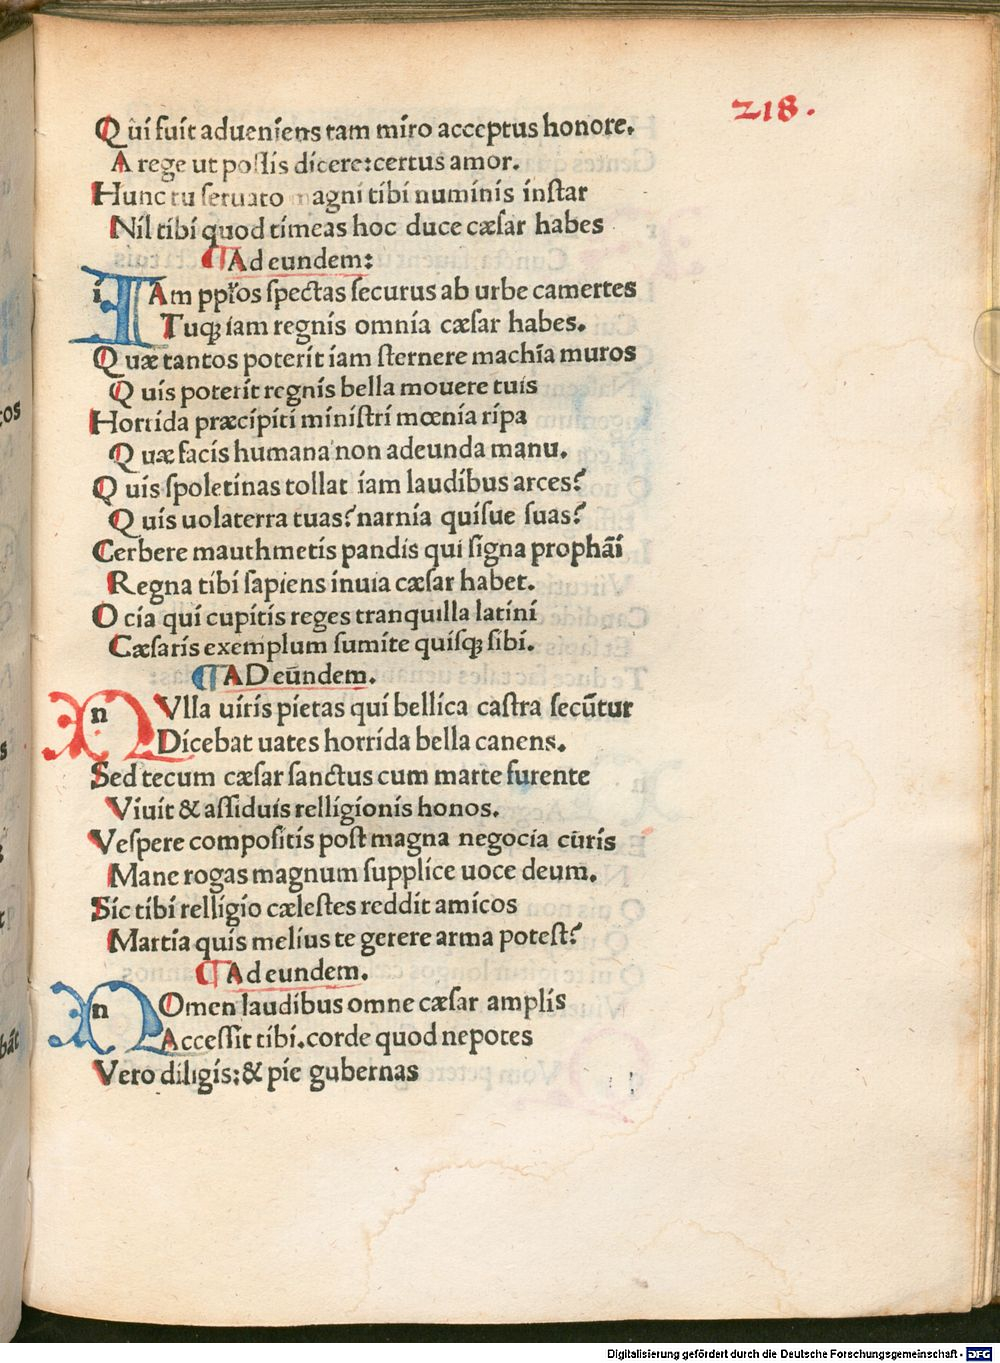 218.
Qui fuit adueniens tam miro acceptus honore.
A rege ut poſſis dicere:certus amor.
Hunc tu ſeruato magni tibi numinis inſtar
Nil tibi quod timeas hoc duce cæſar habes
¶Ad eundem:
IAm ppr̃os ſpectas ſecurus ab urbe camertes
Tuqꝫ iam regnis omnia cæſar habes.
Quæ tantos poterit iam ſternere machia muros
Quis poterit regnis bella mouere tuis
Horrida præcipiti miniſtri mœnia ripa
Quæ facis humana non adeunda manu.
Quis ſpoletinas tollat iam laudibus arces?
Quis uolaterra tuas?narnia quiſue ſuas?
Cerbere mauthmetis pandis qui ſigna prophãi
Regna tibi ſapiens inuia cæſar habet.
Ocia qui cupitis reges tranquilla latini
Cæſaris exemplum ſumite quiſqꝫ ſibi.
¶AD eũndem.
NVlla uiris pietas qui bellica caſtra ſecũtur
Dicebat uates horrida bella canens.
Sed tecum cæſar ſanctus cum marte furente
Viuit & aſſiduis relligionis honos.
Veſpere compoſitis poſt magna negocia cũris
Mane rogas magnum ſupplice uoce deum.
Sic tibi relligio cæleſtes reddit amicos
Martia quis melius te gerere arma poteſt?
¶Ad eundem.
NOmen laudibus omne cæſar amplis
Acceſſit tibi.corde quod nepotes
Vero diligis:& pie gubernas
Digitalisierung gefördert durch die Deutsche Forschungsgemeinschaft - DFG